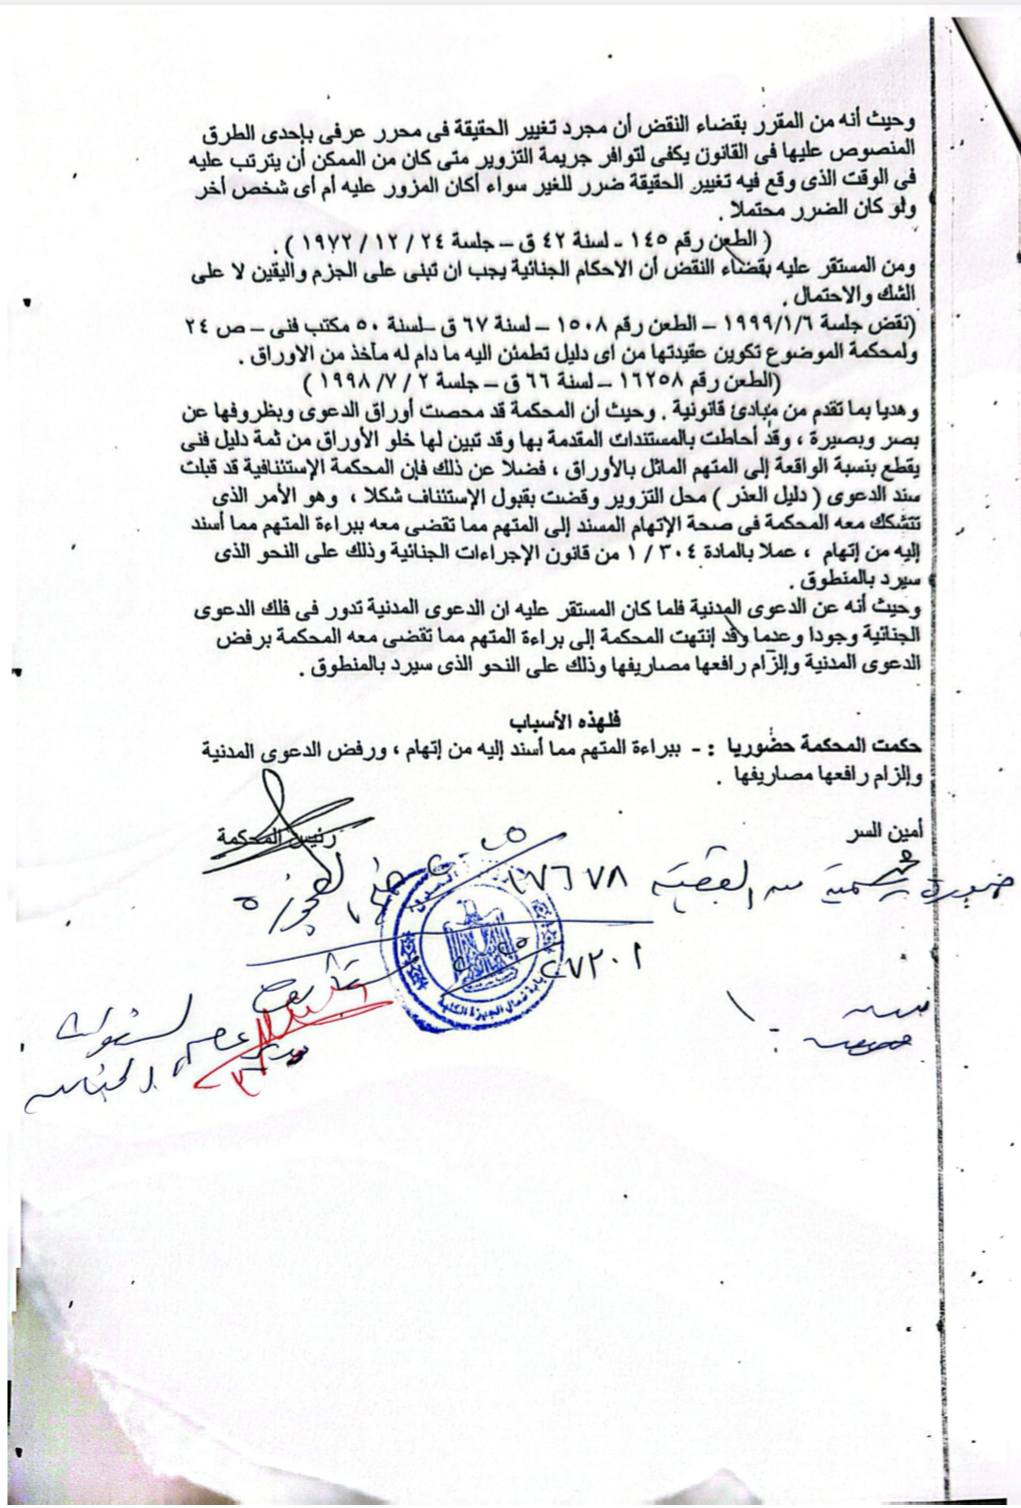 وحيث أنه من المقرر بقضاء النقض أن مجرد تغيير الحقيقة فى محرر عرفى بإحدى الطرق
المنصوص عليها فى القانون يكفى لتوافر جريمة التزوير متى كان من الممكن أن يترتب عليه
فى الوقت الذى وقع فيه تغيير الحقيقة ضرر للغير سواء أكان المزور عليه أم أى شخص أخر
ولو كان الضرر محتملا .
( الطعن رقم ١٤٥ - لسنة ٤٢ ق – جلسة ٢٤ / ١٢ / ١٩٧٢ ) .
ومن المستقر عليه بقضاء النقض أن الاحكام الجنائية يجب ان تبنى على الجزم واليقين لا على
الشك والاحتمال .
(نقض جلسة ١٩٩٩/١/٦ – الطعن رقم ١٥٠٨ – لسنة ٦٧ ق –لسنة ٥٠ مكتب فنى – ص ٢٤
ولمحكمة الموضوع تكوين عقيدتها من اى دليل تطمئن اليه ما دام له مأخذ من الاوراق .
(الطعن رقم ١٦٢٥٨ – لسنة ٦٦ ق – جلسة ٢ / ٧/ ١٩٩٨ )
وهديا بما تقدم من مبادئ قانونية . وحيث أن المحكمة قد محصت أوراق الدعوى وبظروفها عن
بصر وبصيرة ، وقد أحاطت بالمستندات المقدمة بها وقد تبين لها خلو الأوراق من ثمة دليل فنى
يقطع بنسبة الواقعة إلى المتهم الماثل بالأوراق ، فضلا عن ذلك فإن المحكمة الإستئنافية قد قبلت
سند الدعوى ( دليل العذر ) محل التزوير وقضت بقبول الإستئناف شكلا ، وهو الأمر الذى
تتشكك معه المحكمة فى صحة الإتهام المسند إلى المتهم مما تقضى معه ببراءة المتهم مما أسند
إليه من إتهام ، عملا بالمادة ٣٠٤ / ١ من قانون الإجراءات الجنائية وذلك على النحو الذى
سيرد بالمنطوق .
وحيث أنه عن الدعوى المدنية فلما كان المستقر عليه ان الدعوى المدنية تدور فى فلك الدعوى
الجنائية وجودا وعدما وقد إنتهت المحكمة إلى براءة المتهم مما تقضى معه المحكمة برفض
الدعوى المدنية وإلزام رافعها مصاريفها وذلك على النحو الذى سيرد بالمنطوق .
فلهذه الأسباب
حكمت المحكمة حضوريا : - ببراءة المتهم مما أسند إليه من إتهام ، ورفض الدعوى المدنية
وإلزام رافعها مصاريفها .
أمين السر
رئيس المحكمة
صورة رسمية من القضية ١٧٦٧٨
٢٧٢٠١
نيابة شمال الجيزة الكلية